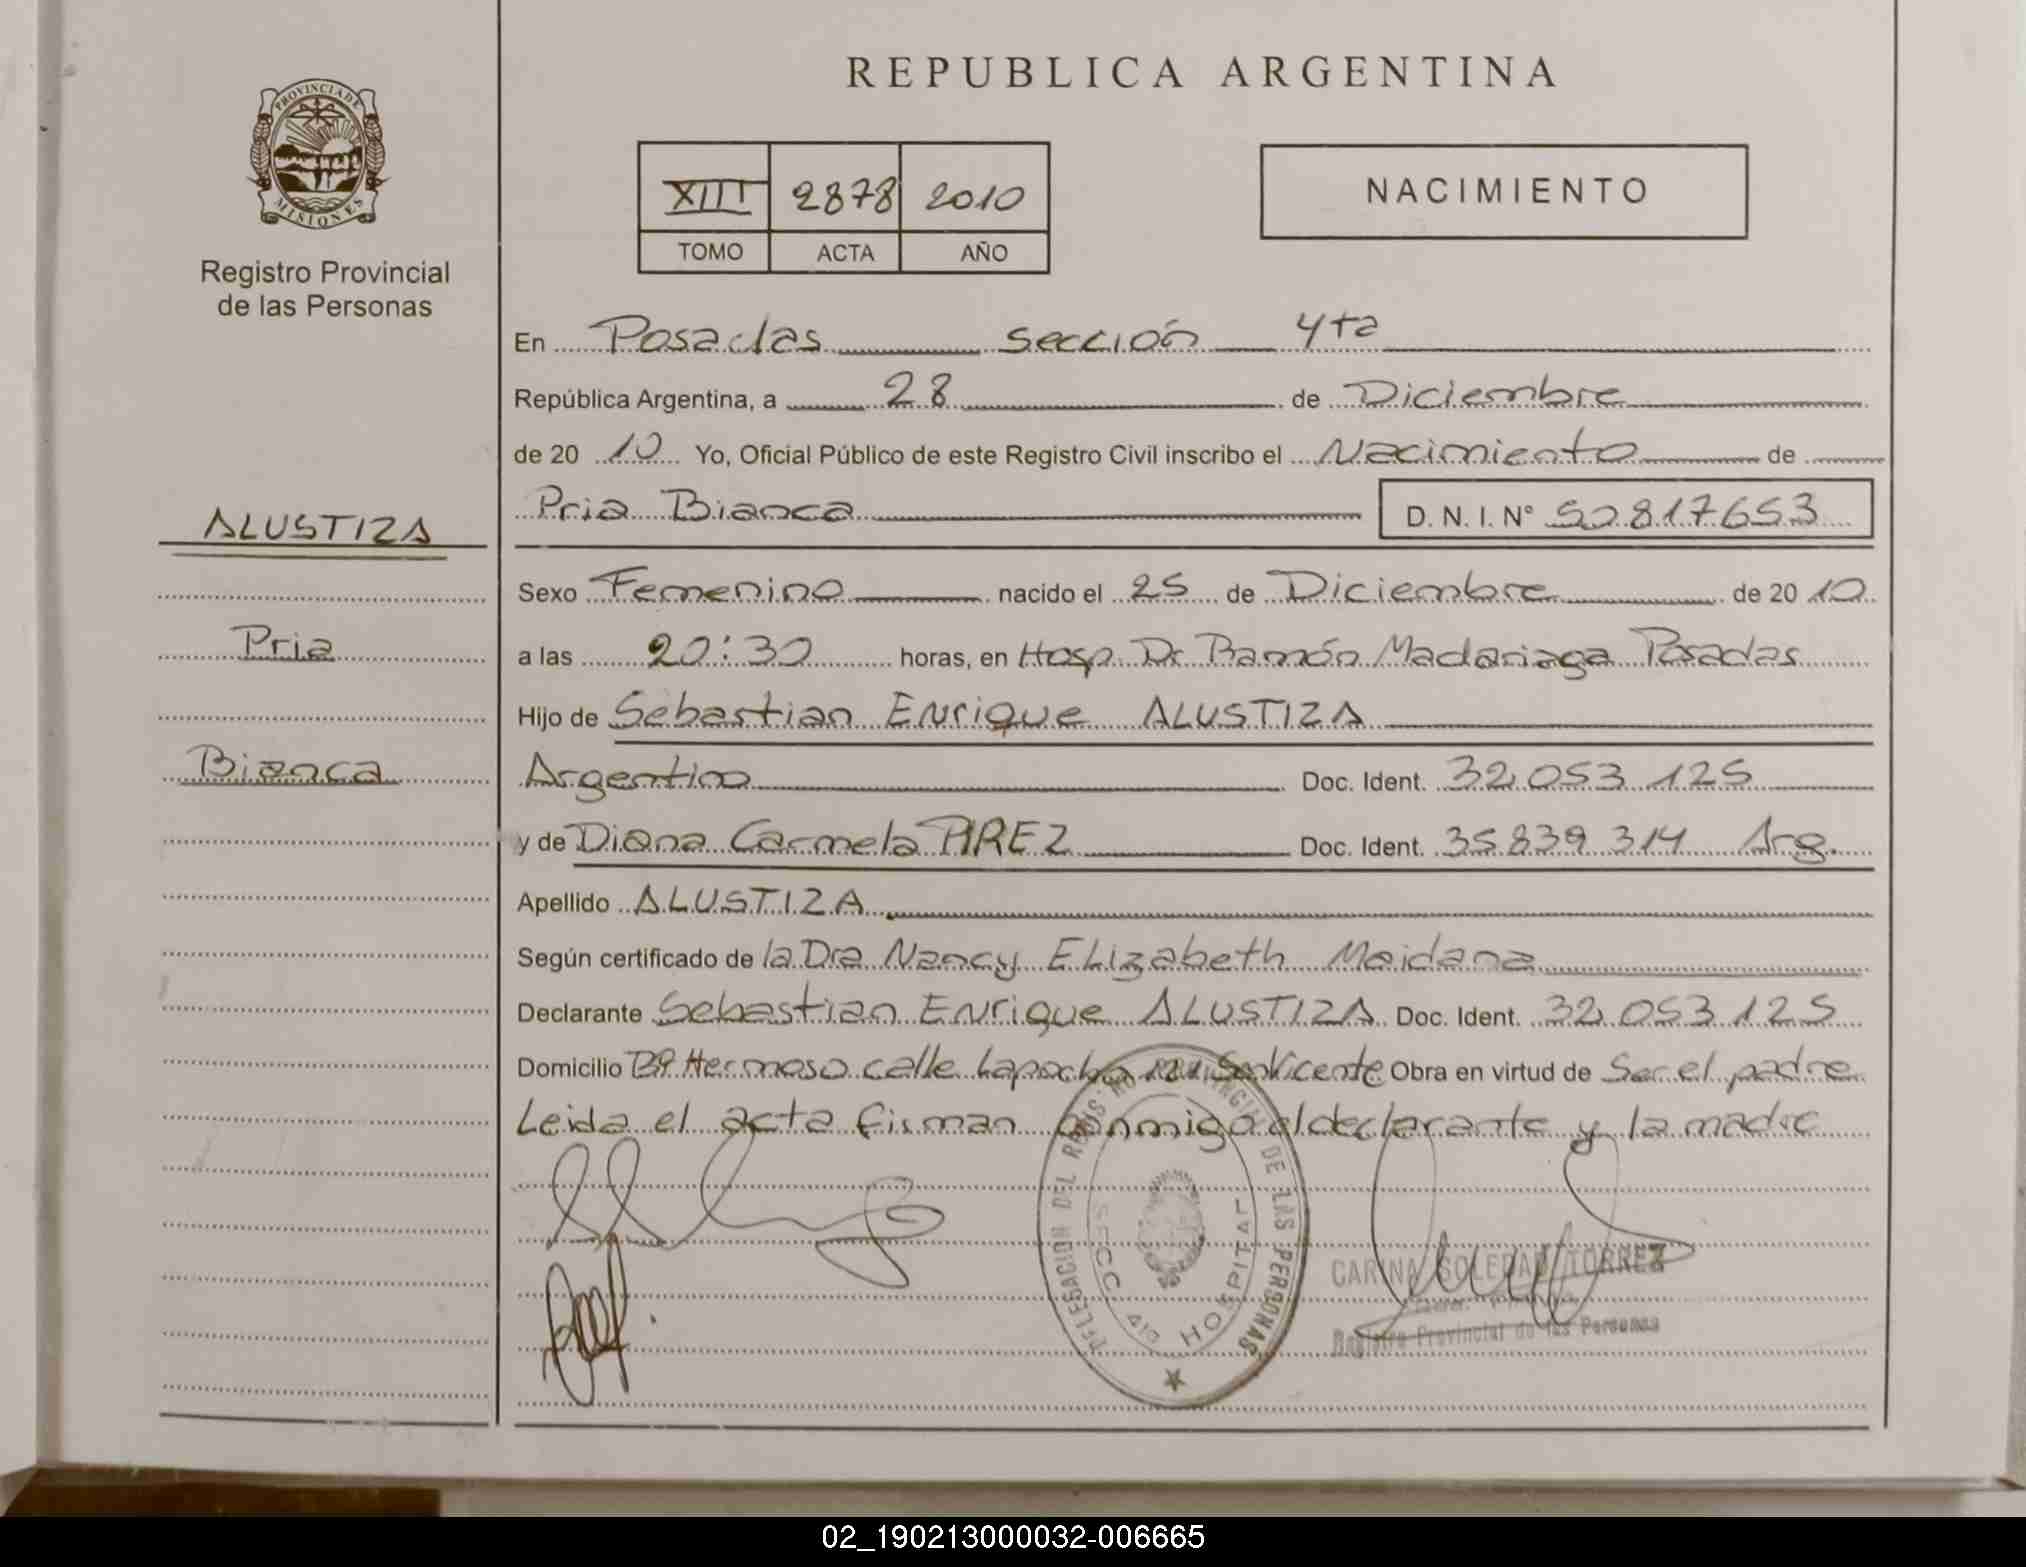 PROVINCIA DE
MISIONES
Registro Provincial
de las Personas
ALUSTIZA
Pria
Bianca
REPUBLICA ARGENTINA
XIII 2878 2010
TOMO ACTA AÑO
NACIMIENTO
En Posadas sección 4ta
República Argentina, a 28 de Diciembre
de 2010 Yo, Oficial Público de este Registro Civil inscribo el Nacimiento de
Pria Bianca D. N. I. N° 50817653
Sexo Femenino nacido el 25 de Diciembre de 2010
a las 20:30 horas, en Hosp. Dr Ramón Madariaga Posadas
Hijo de Sebastian Enrique ALUSTIZA
Argentino Doc. Ident. 32.053.125
y de Diana Carmela PIREZ Doc. Ident. 35.839.314 Arg.
Apellido ALUSTIZA
Según certificado de la Dra Nancy Elizabeth Meidana
Declarante Sebastian Enrique ALUSTIZA Doc. Ident. 32.053.125
Domicilio Bº Hermoso calle Lapacho 121 San Vicente Obra en virtud de Ser el padre
Leida el acta firman conmigo el declarante y la madre
DELEGACION DEL PROVINCIAL DE LAS PERSONAS
SECC 4ta HOSPITAL
CARINA SOLEDAD TORREZ
Registro Provincial de las Personas
02_190213000032-006665